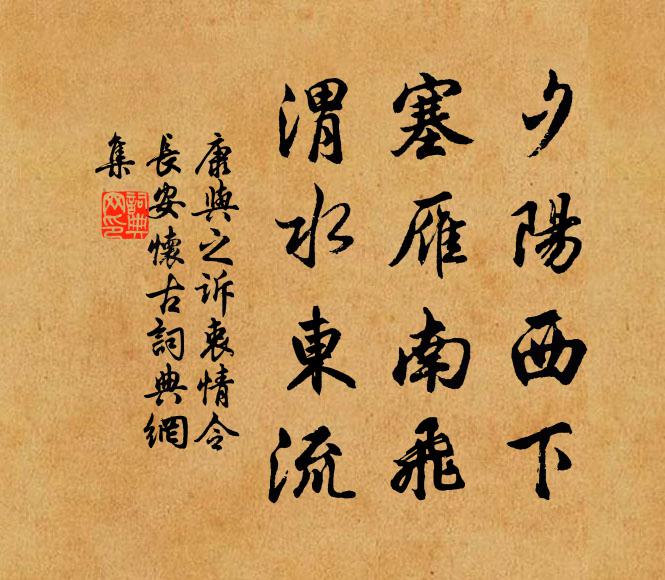 夕陽西下
塞雁南飛
渭水東流
康與之訴衷情令
長安懷古詞典網
集
詞典
网印